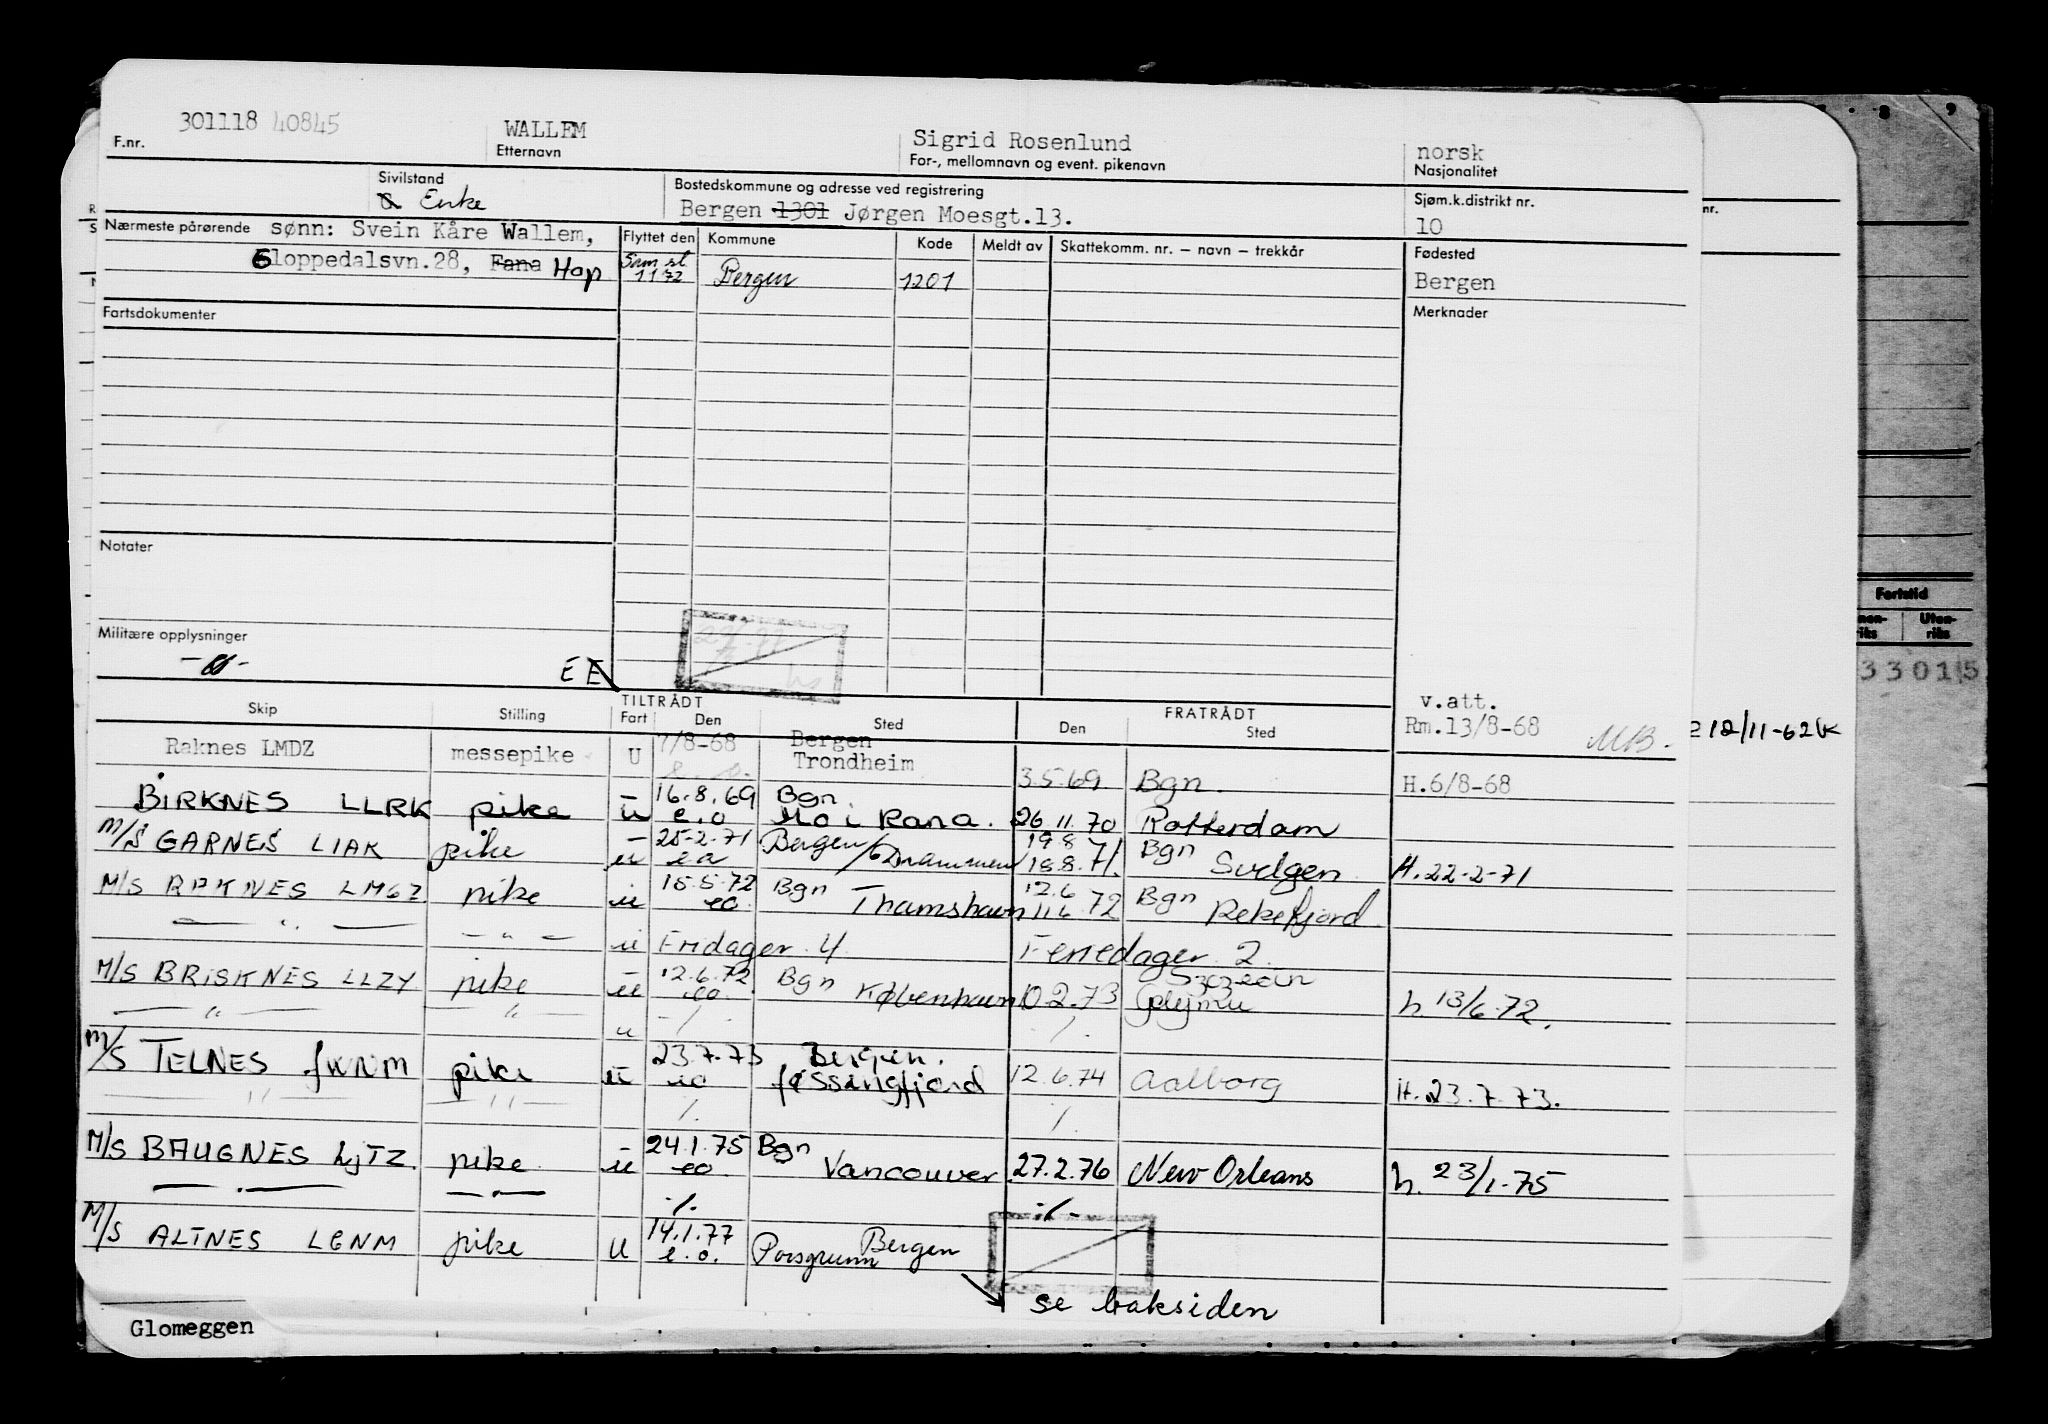 301118 40845 WALLEM Sigrid Rosenlund norsk
F.nr. Etternavn For-, mellomnavn og event. pikenavn Nasjonalitet
Sivilstand Bostedskommune og adresse ved registrering Sjøm.k.distrikt nr.
Enke Bergen 1301 Jørgen Moesgt.13. 10
Nærmeste pårørende sønn: Svein Kåre Wallem, Flyttet den Kommune Kode Meldt av Skattekomm. nr. – navn – trekkår Fødested
Gloppedalsvn.28, Fana Hop Sam st 1 1 72 Bergen 1201 Bergen
Fartsdokumenter Merknader
Notater
Militære opplysninger
E
v.att.
TILTRÅDT FRATRÅDT
Skip Stilling Fart Den Sted Den Sted Rm.13/8-68 MB.
Raknes LMDZ messepike U 7/8-68 Bergen
Trondheim 3.5.69 Bgn. H.6/8-68
BIRKNES LLRK pike u 16.8.69 Bgn.
e.o Mo i Rana. 26 11. 70 Rotterdam
M/S GARNES LIAK pike u 25-2.71 Bergen 19.8 Bgn
Drammen 18.8.71. Svelgen H.22-2-71
M/S RAKNES pike u 15.5.72 Bgn 12.6 Bgn
eo. Thamshavn 11.6.72 Rekefjord
— " — — " — u Fridager 4 Feriedager 2.
M/S BRISKNES LLZY pike u 12.6.72 Bgn Szczecin
eo. København 10.2.73 h. 13/6.72.
— " — — " — u -/- -/-
M/S TELNES pike u 23.7.73 Bergen.
eo Jøssingfjord 12.6.74 Aalborg H.23.7.73.
— " — — " — -/- -/-
M/S BAUGNES LJTZ. pike u 24.1.75 Bgn
eo. Vancouver. 27.2.76 New Orleans h. 23/1-75
— " — — " — -/- -/-
M/S ALTNES LGNM pike U 14.1.77 Bergen
e.o. Porsgrunn
se baksiden
Glomeggen
nr.
Fartstid
Uten-
riks
33015
12/11-62